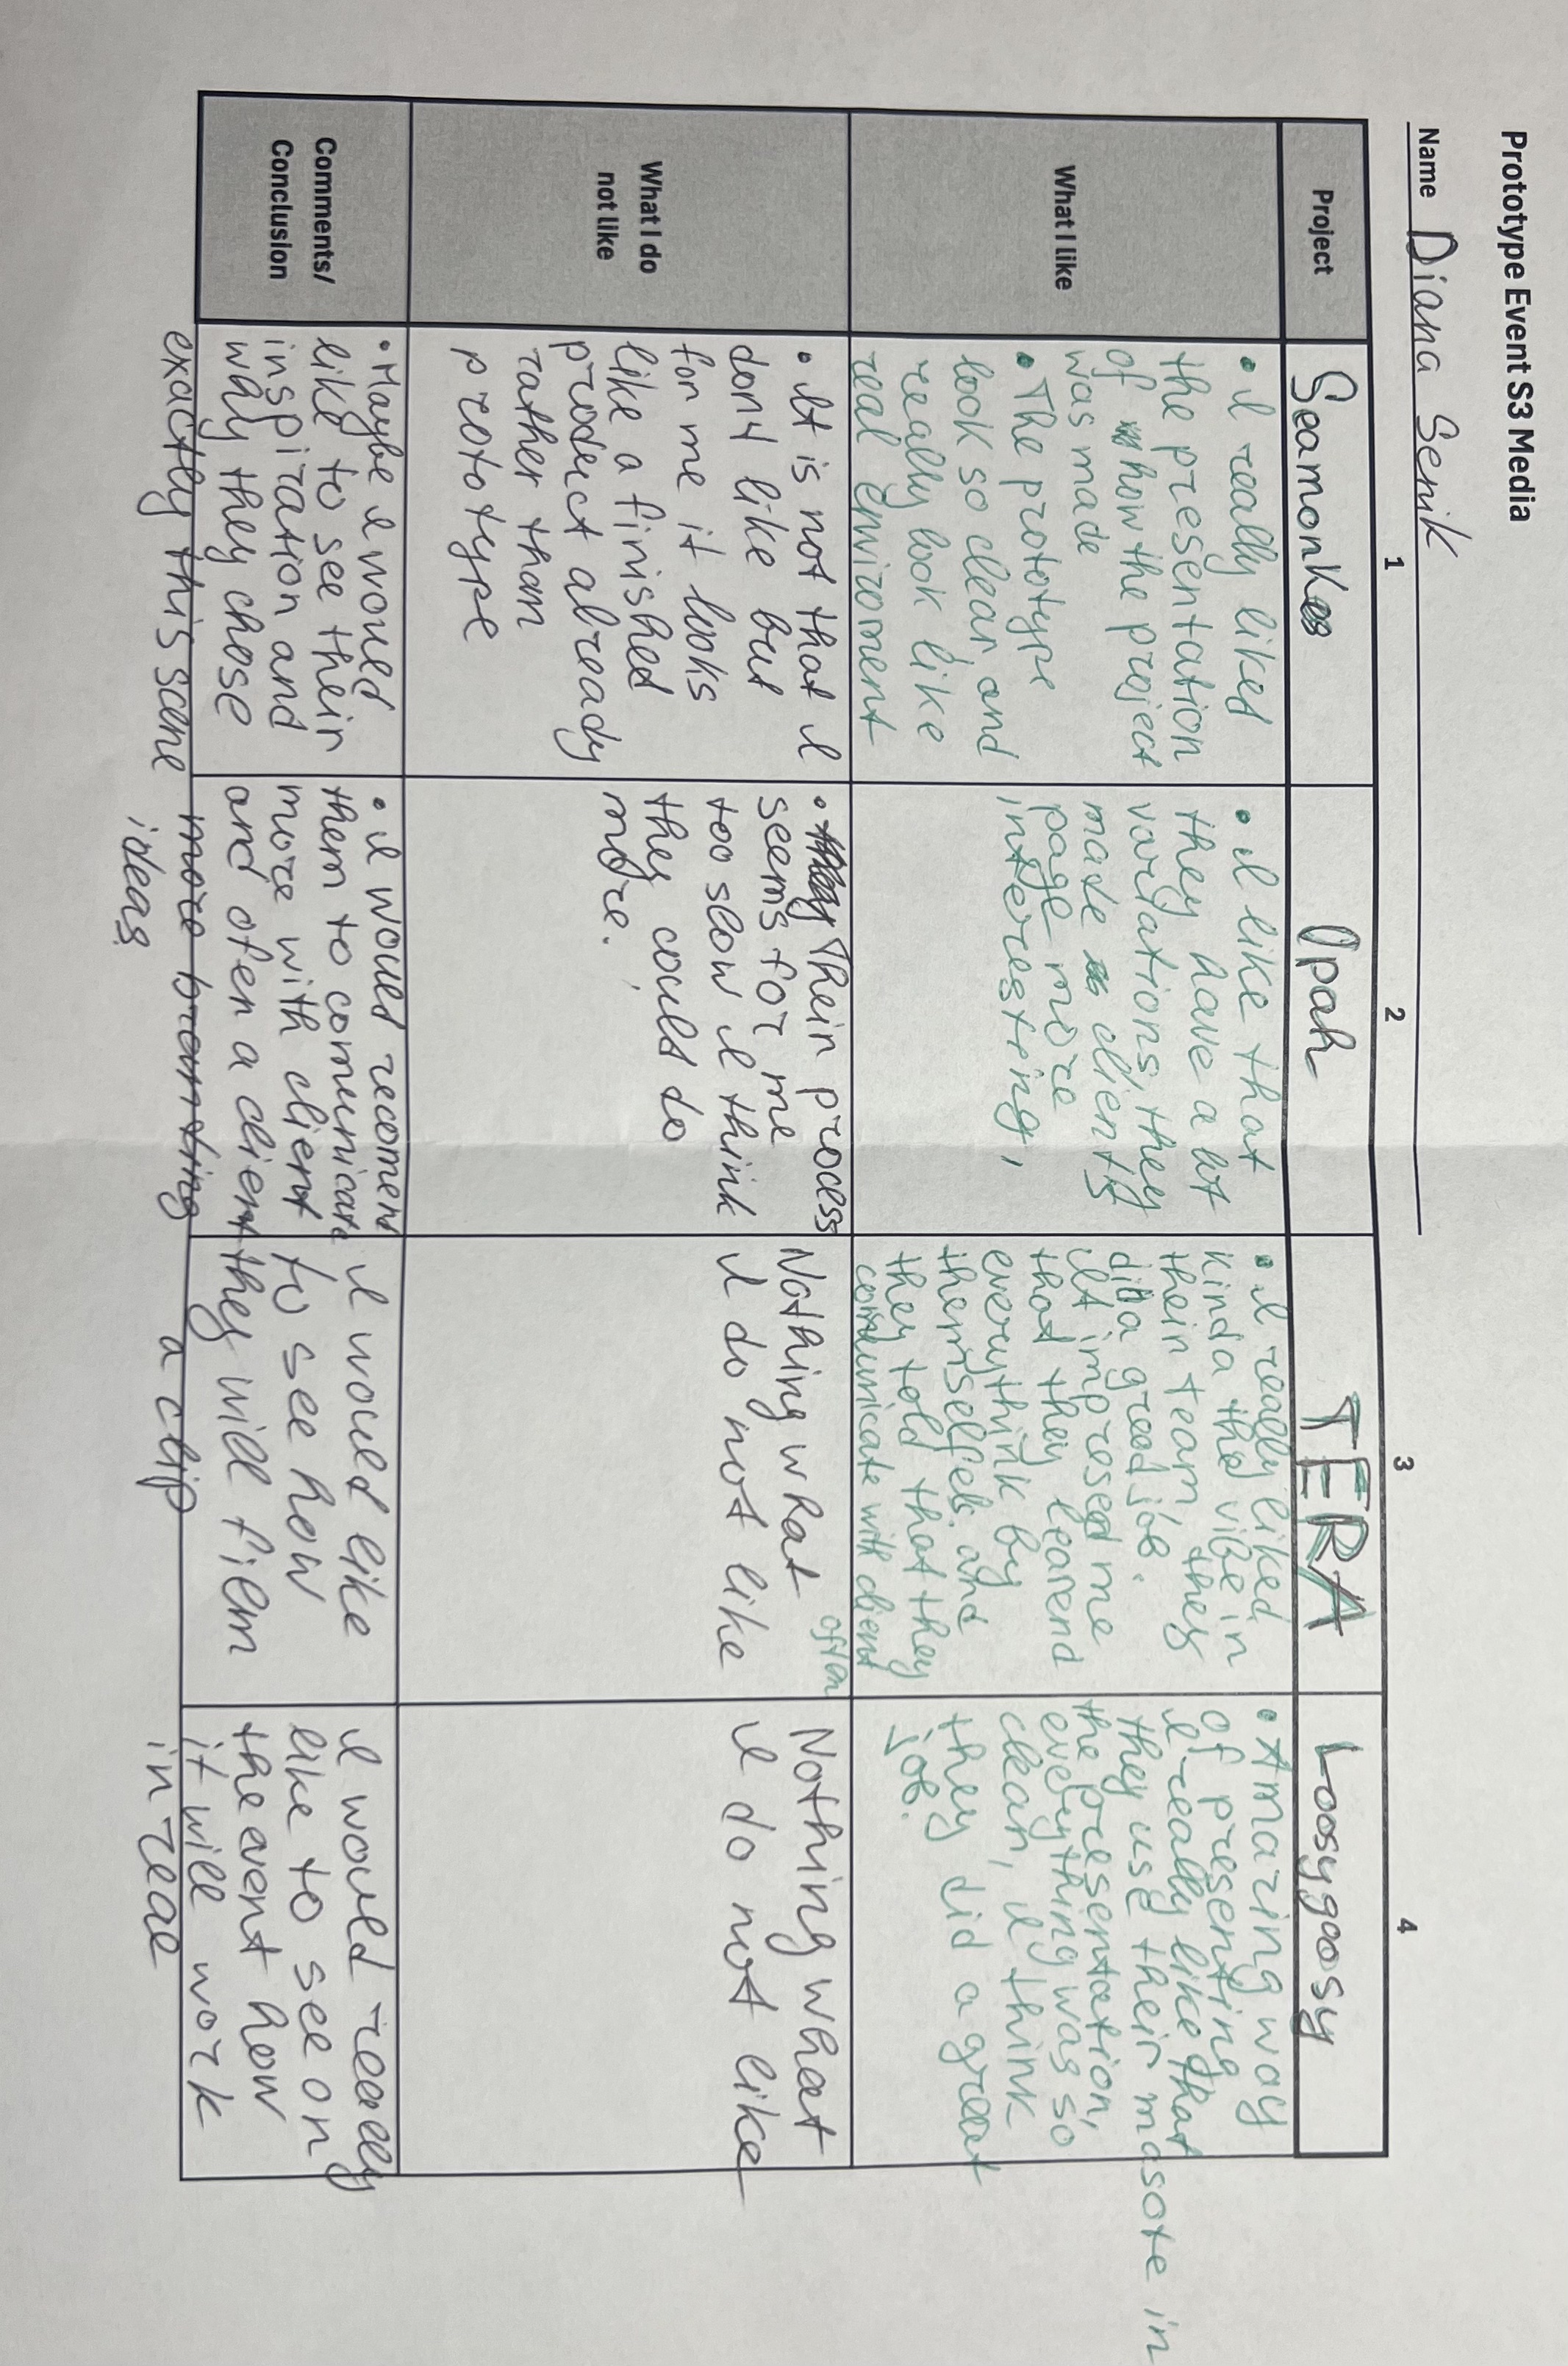 Prototype Event S3 Media
Name Diana Senik
1
2
3
4
Project
Seamonkes
Opah
TERA
Loosygoosy
What I like
• I really liked
the presentation
of how the project
was made
• The prototype
look so clear and
really look like
real enviroment
• I like that
they have a lot
variations, they
made clients
page more
interesting,
• I really liked
kinda the vibe in
their team, they
did a good job.
It impresed me
that they learend
everythink by
themselfes. and
they told that they
comunicate with client
often
• Amazing way
of presenting
I really like that
they use their mascote in
the presentation,
everything was so
clear, I think
they did a great
job.
What I do
not like
• It is not that I
don't like but
for me it looks
like a finished
product already
rather than
prototype
• Their process
seems for me
too slow I think
they could do
more.
Nothing what
I do not like
Nothing what
I do not like
Comments/
Conclusion
• Maybe I would
like to see their
inspiration and
why they chose
exactly this scene
• I would recoment
them to comunicate
more with client
and ofen a client
more
ideas
I would like
to see how
they will film
a clip
I would really
like to see on
the event how
it will work
in real